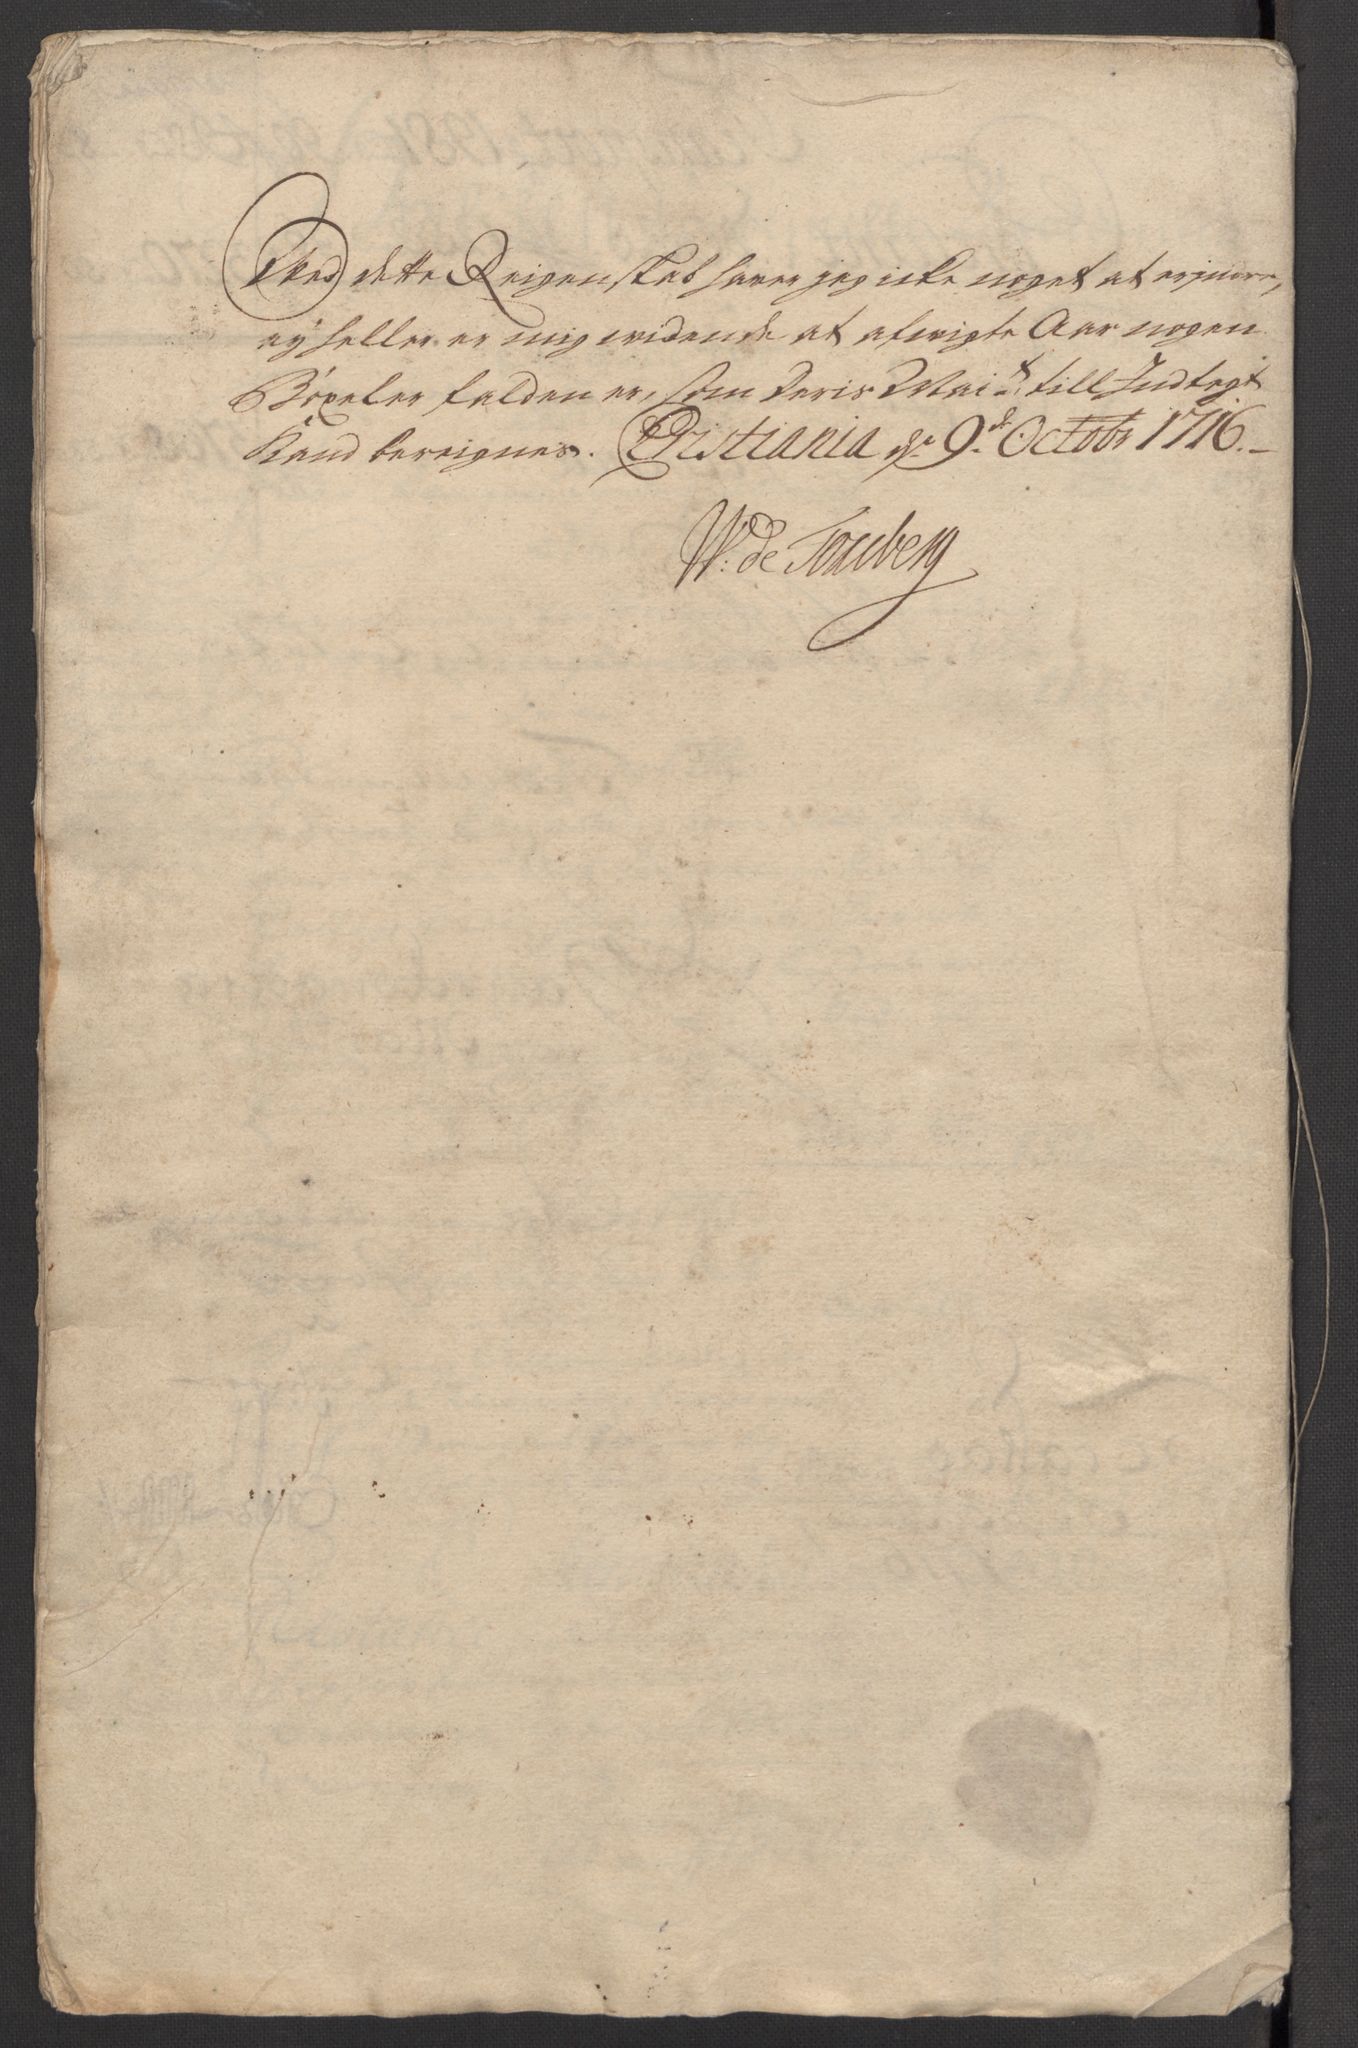 Wed dette Reigenskab hawer jeg icke noget at erjnere,
ey heller er mig widende at afwigte Aar nogen
Böxeler falden er, som Deris Mai.t till Indtegt
Kand bereignes. Christiania d. 9.de Octobr 1716.
W: de Tonsberg